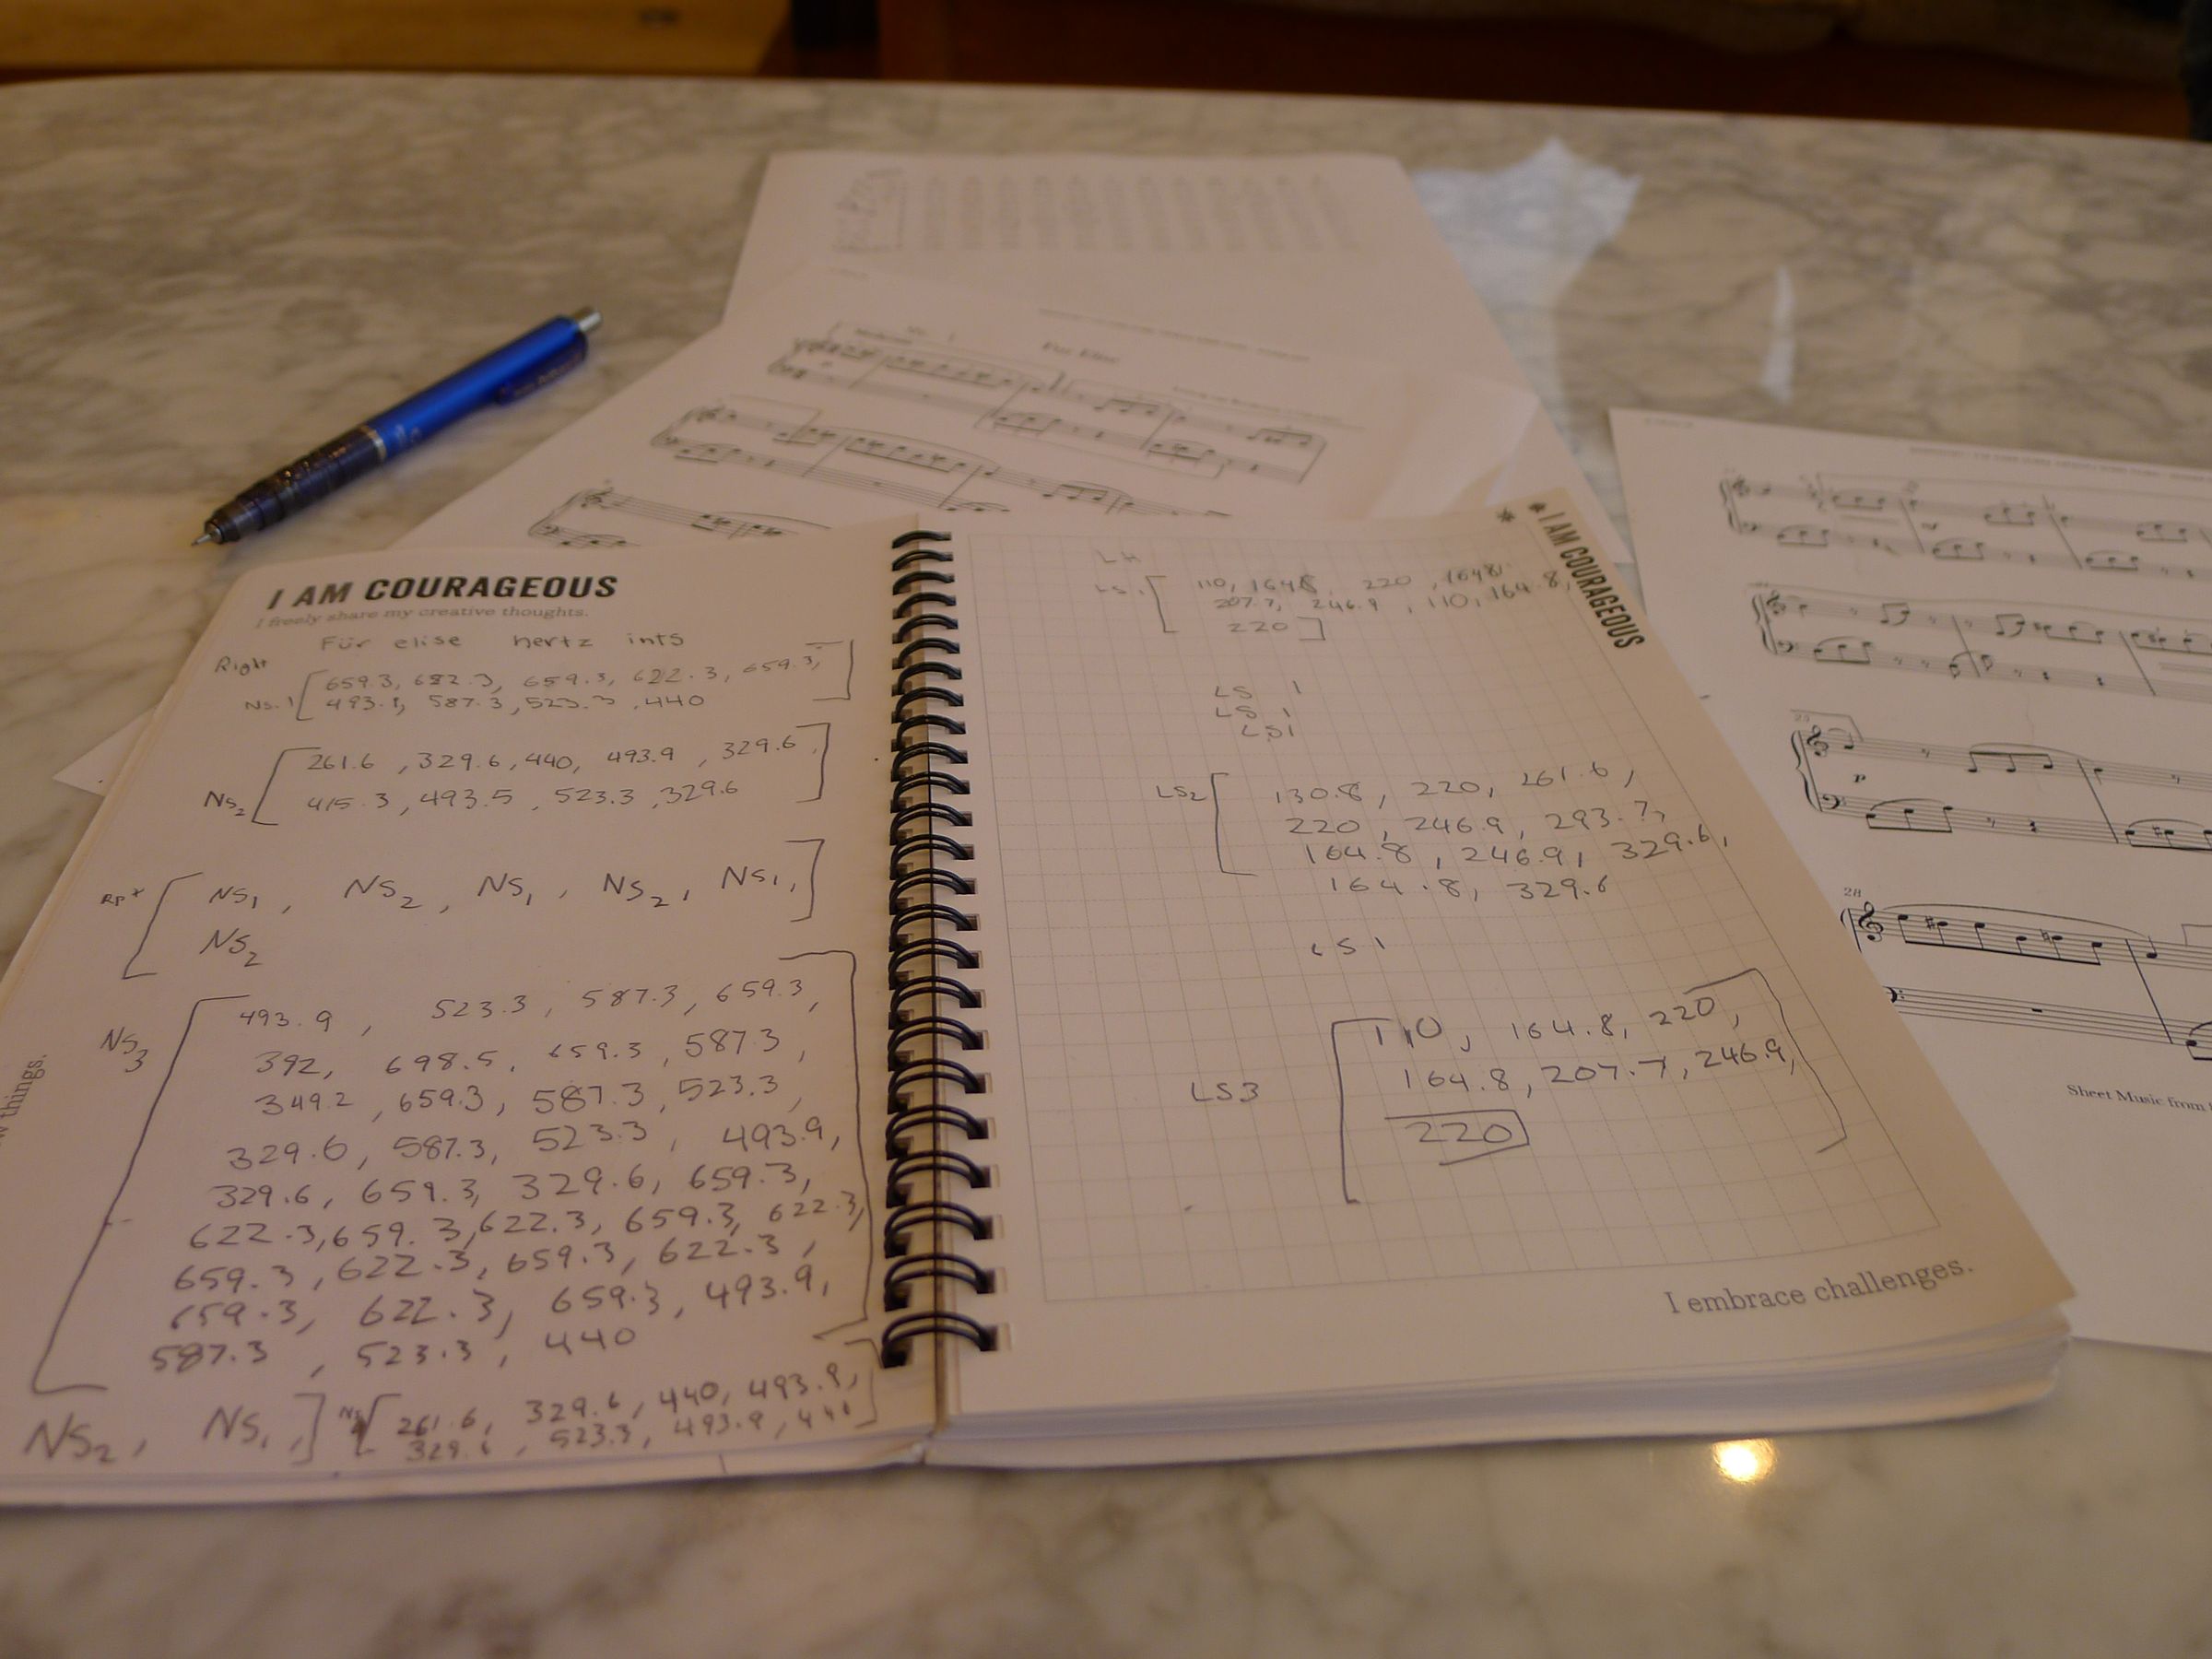 I AM COURAGEOUS
I freely share my creative thoughts.
Für elise hertz ints
Right
NS.1 [ 659.3, 682.3, 659.3, 622.3, 659.3,
493.9, 587.3, 523.3, 440 ]
NS2 [ 261.6, 329.6, 440, 493.9, 329.6,
415.3, 493.5, 523.3, 329.6 ]
[ NS1, NS2, NS1, NS2, NS1,
NS2 ]
NS3 [ 493.9, 523.3, 587.3, 659.3,
392, 698.5, 659.3, 587.3,
349.2, 659.3, 587.3, 523.3,
329.6, 587.3, 523.3, 493.9,
329.6, 659.3, 329.6, 659.3,
622.3, 659.3, 622.3, 659.3, 622.3,
659.3, 622.3, 659.3, 622.3,
659.3, 622.3, 659.3, 493.9,
587.3, 523.3, 440
NS2, NS1, ] [ 261.6, 329.6, 440, 493.9,
329.6, 523.3, 493.9, 440 ]
things.
* I AM COURAGEOUS
LH
LS1 [ 110, 164.8, 220, 164.8,
207.7, 246.9, 110, 164.8,
220 ]
LS 1
LS 1
LS1
LS2 [ 130.8, 220, 261.6,
220, 246.9, 293.7,
164.8, 246.9, 329.6,
164.8, 329.6
LS 1
LS3 [ 110, 164.8, 220,
164.8, 207.7, 246.9,
220 ]
I embrace challenges.
Für Elise
23
p
28
Sheet Music from